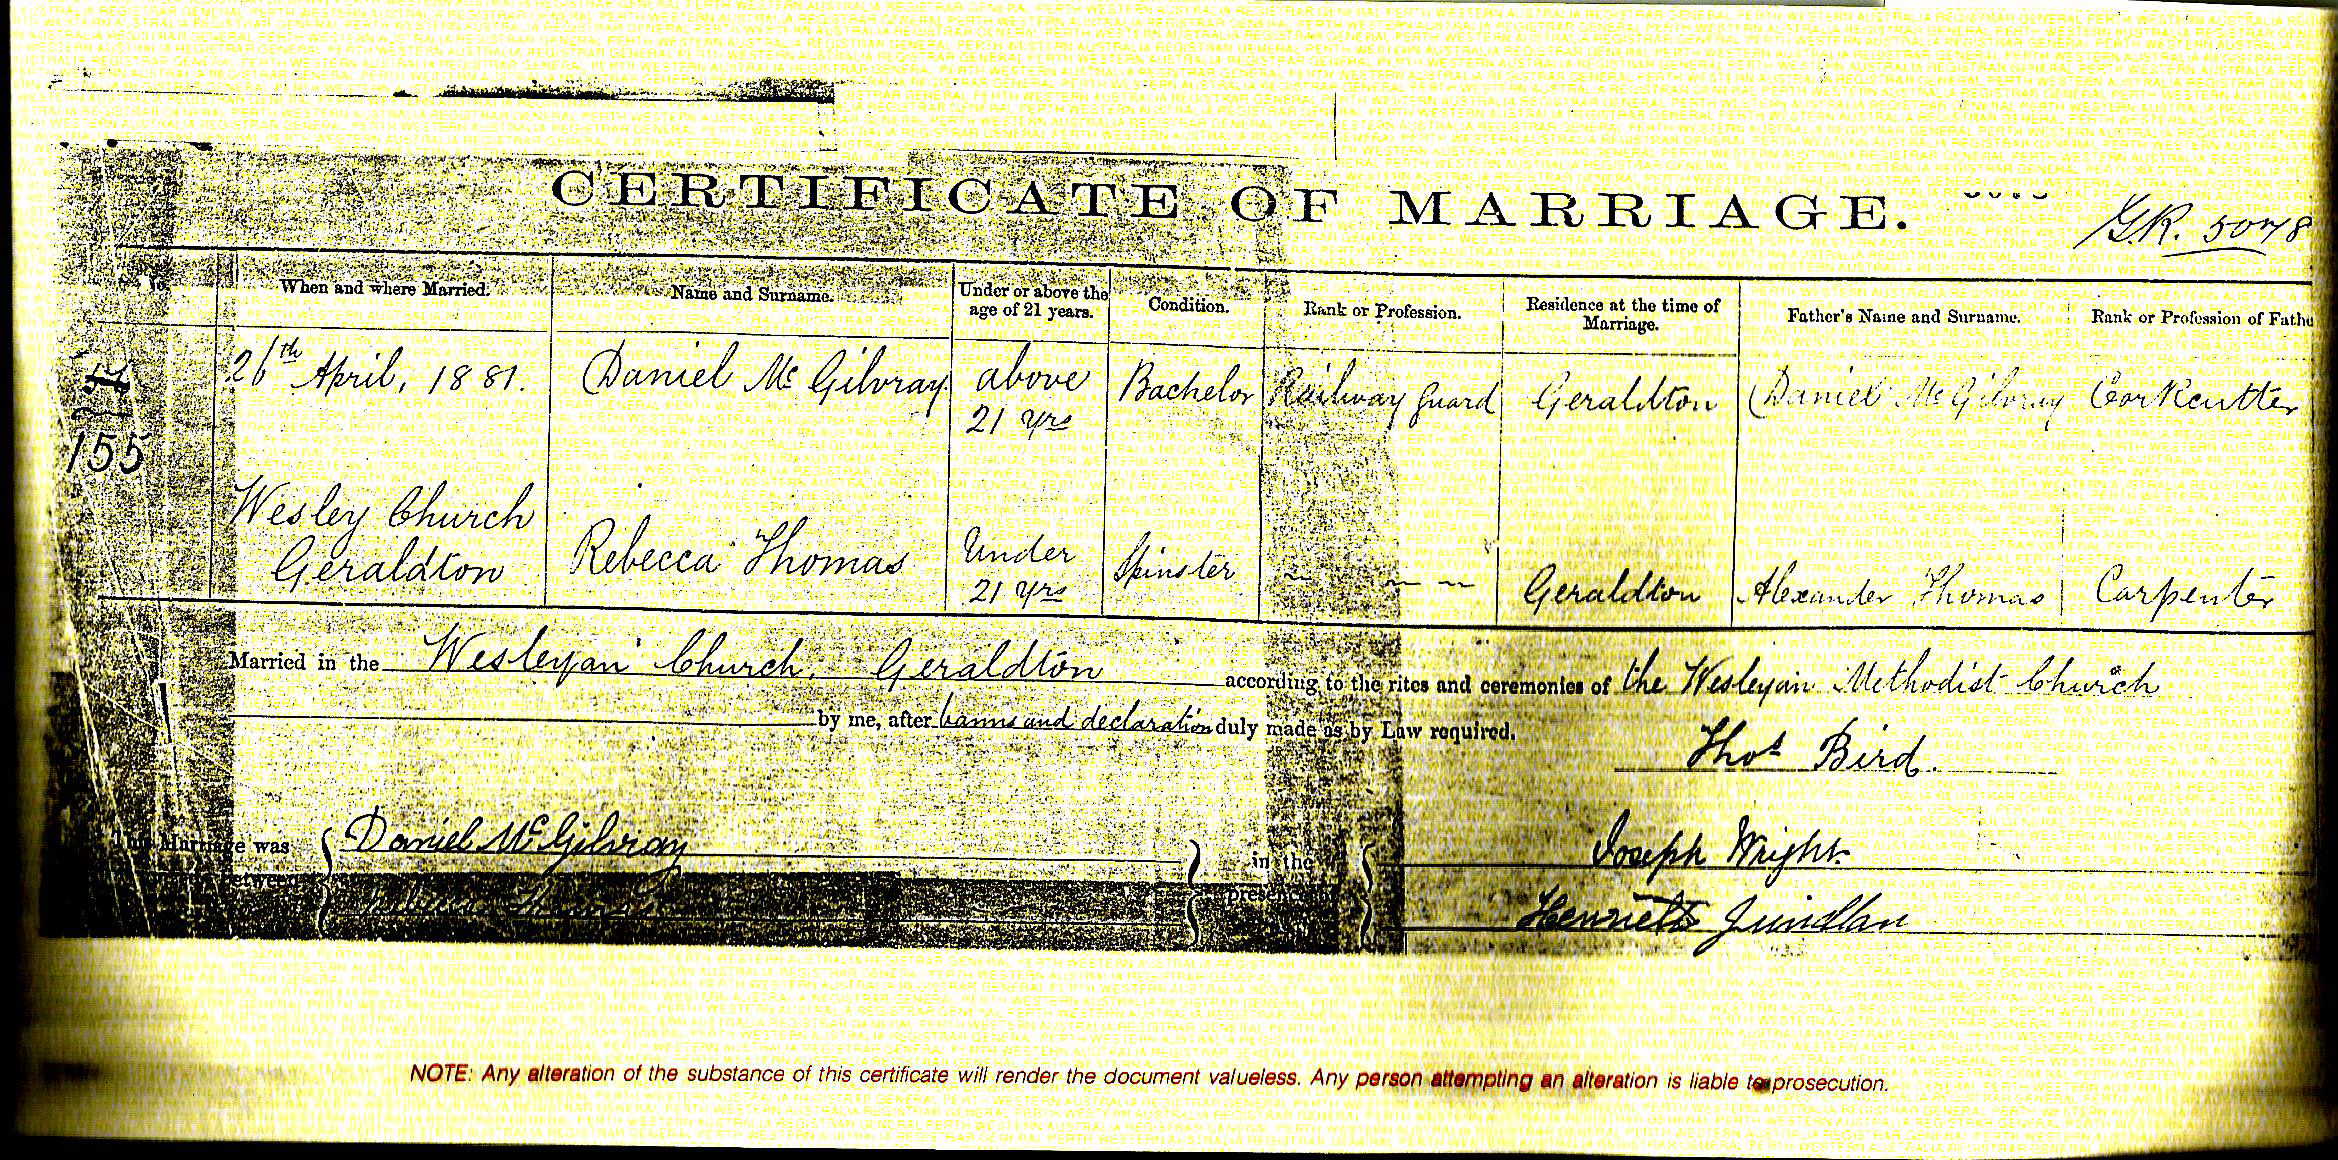 CERTIFICATE OF MARRIAGE.
G.R. 5078
No.
When and where Married.
Name and Surname.
Under or above the age of 21 years.
Condition.
Rank or Profession.
Residence at the time of Marriage.
Father's Name and Surname.
Rank or Profession of Fathe
155
26th April, 1881.
Daniel Mc Gilvray
above 21 yrs
Bachelor
Railway Guard
Geraldton
Daniel Mc Gilvray
Corkcutter
Wesley Church
Geraldton
Rebecca Thomas
Under 21 yrs
Spinster
Geraldton
Alexander Thomas
Carpenter
Married in the Wesleyan Church, Geraldton according to the rites and ceremonies of the Wesleyan Methodist Church
by me, after banns and declaration duly made as by Law required.
Thos Bird.
This Marriage was between
Daniel McGilvray
Rebecca Thomas
in the presence
Joseph Wright
Henrietta
NOTE: Any alteration of the substance of this certificate will render the document valueless. Any person attempting an alteration is liable to prosecution.